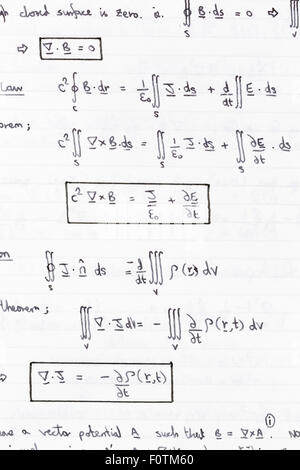 closed surface is zero. ie. ∯_S B·ds = 0 ⇒ ∭
⇒ ∇·B = 0
Law c² ∮_C B·dr = 1/ε₀ ∬_S J·ds + d/dt ∬_S E·ds
orem; c² ∬_S ∇×B·ds = ∬_S 1/ε₀ J·ds + ∬_S ∂E/∂t · ds
c² ∇×B = J/ε₀ + ∂E/∂t
on ∯_S J·n̂ ds = -d/dt ∭_V ρ(r,t) dV
theorem; ∭_V ∇·J dV = - ∭_V ∂/∂t ρ(r,t) dV
⇒ ∇·J = - ∂ρ(r,t)/∂t
(i)
has a vector potential A such that B = ∇×A. No
alamy stock photo
F0TM60